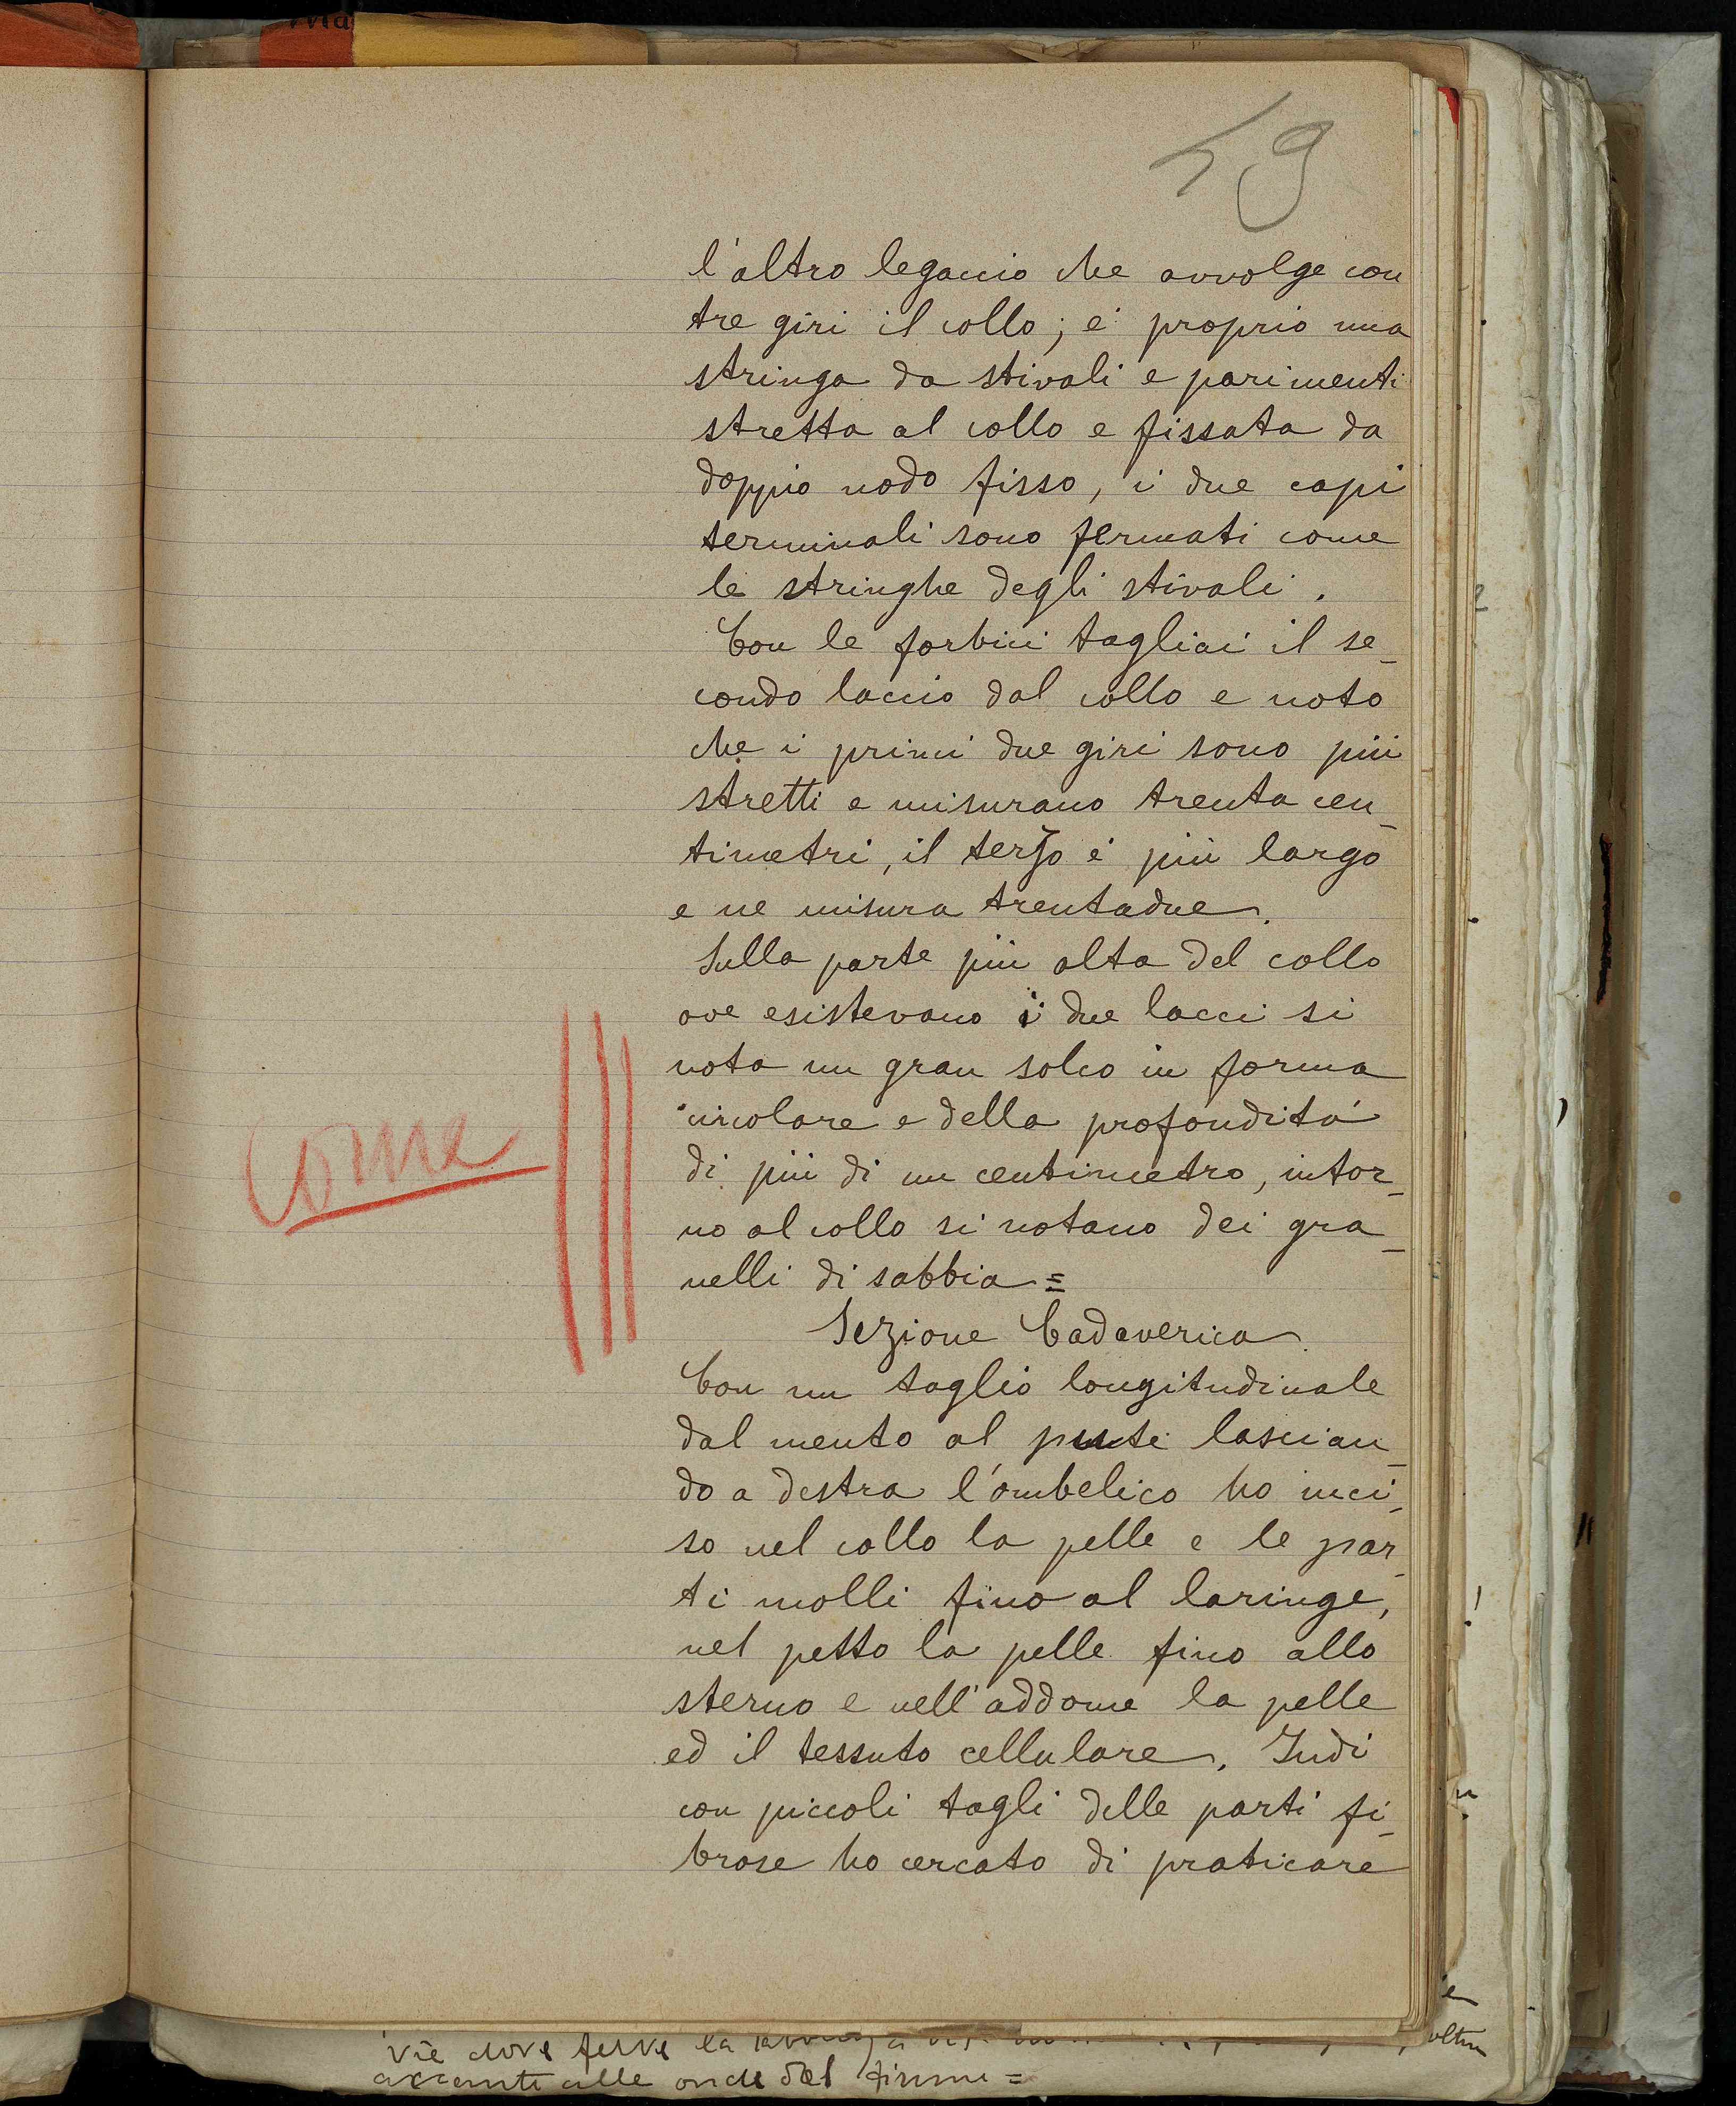 59
l'altro legaccio che avvolge con
tre giri il collo; e' proprio una
stringa da stivali e parimenti
stretta al collo e fissata da
doppio nodo fisso, i due capi
terminali sono fermati come
le stringhe degli stivali.
Con le forbici tagliai il se_
condo laccio dal collo e noto
che i primi due giri sono più
stretti e misurano trenta cen_
timetri, il terzo e' più largo
e ne misura trentadue.
Sulla parte più alta del collo
ove esistevano i due lacci si
nota un gran solco in forma
circolare e della profondità
di più di un centimetro, intor_
no al collo si notano dei gra_
nelli di sabbia =
come
Sezione Cadaverica.
Con un taglio longitudinale
dal mento al pube lascian_
do a destra l'ombelico ho inci_
so nel collo la pelle e le par_
ti molli fino al laringe,
nel petto la pelle fino allo
sterno e nell'addome la pelle
ed il tessuto cellulare. Indi
con piccoli tagli delle parti fi_
brose ho cercato di praticare
vie dove ferve la
alle onde del fiume =